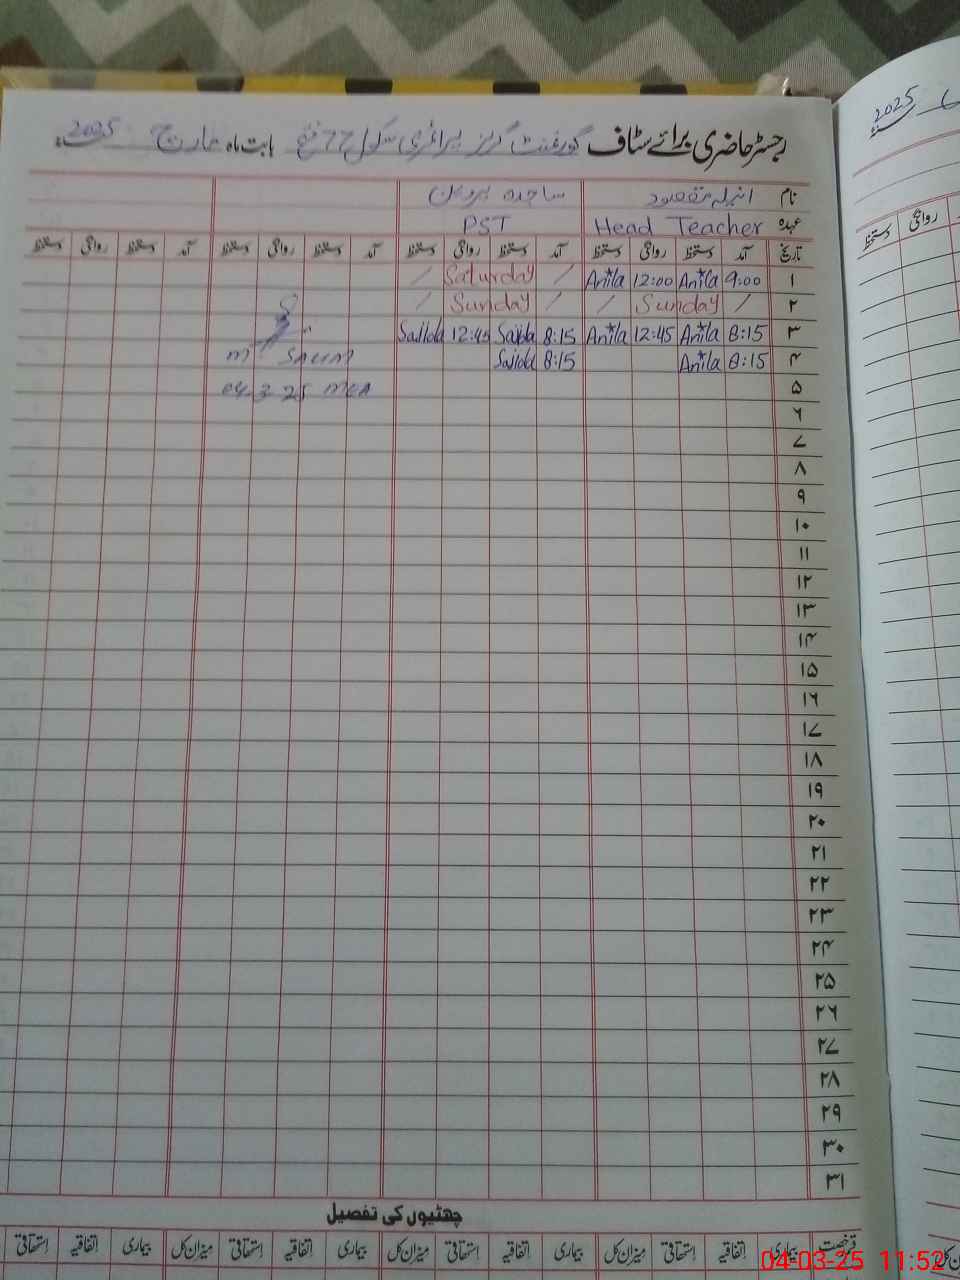 رجسٹر حاضری برائے سٹاف گورنمنٹ گرلز پرائمری سکول 77 فتح بابت ماہ مارچ 2025ء
نام انیلہ مقصود ساجدہ پروین
عہدہ Head Teacher PST
تاریخ آمد دستخط روانگی دستخط آمد دستخط روانگی دستخط آمد دستخط روانگی دستخط آمد دستخط روانگی دستخط
۱ 9:00 Anila 12:00 Anila / Saturday /
۲ / Sunday / / Sunday /
۳ 8:15 Anila 12:45 Anila 8:15 Sajida 12:45 Sajida
۴ 8:15 Anila 8:15 Sajida M SALIM
۵ 04-3-25 MEA
۶
۷
۸
۹
۱۰
۱۱
۱۲
۱۳
۱۴
۱۵
۱۶
۱۷
۱۸
۱۹
۲۰
۲۱
۲۲
۲۳
۲۴
۲۵
۲۶
۲۷
۲۸
۲۹
۳۰
۳۱
چھٹیوں کی تفصیل
قسم رخصت بیماری اتفاقیہ استحقاقی میزان کل بیماری اتفاقیہ استحقاقی میزان کل بیماری اتفاقیہ استحقاقی میزان کل بیماری اتفاقیہ استحقاقی
2025ء
روانگی دستخط
04-03-25 11:52